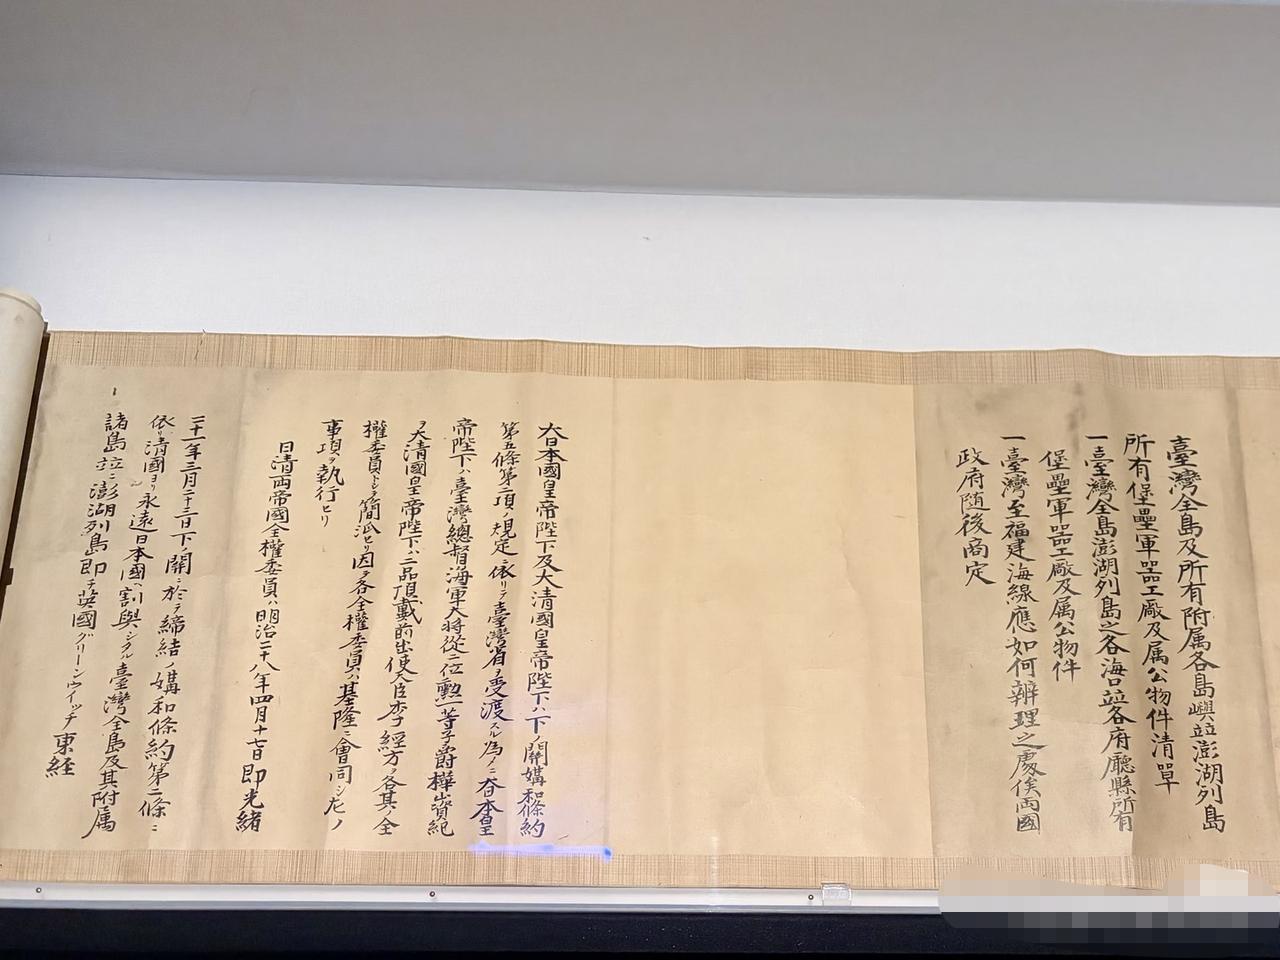 臺灣全島及所有附属各島嶼竝澎湖列島
所有堡壘軍器工廠及属公物件清單
一臺灣全島澎湖列島之各海口竝各府廳縣所有
堡壘軍器工廠及属公物件
一臺灣至福建海線應如何辦理之處俟両國
政府随後商定
大日本國皇帝陛下及大清國皇帝陛下ハ下ノ關媾和條約
第五條第二項ノ規定ニ依リテ臺灣省ヲ受渡スル為メニ大日本皇
帝陛下ハ臺灣總督海軍大将從二位勲一等子爵樺山資紀
ヲ大清國皇帝陛下ハ二品頂戴前出使大臣李經方ヲ各其ノ全
權委員トシテ簡派セリ因テ各全權委員ハ基隆ニ會同シ左ノ
事項ヲ執行セリ
日清両帝國全權委員ハ明治二十八年四月十七日即光緒
二十一年三月二十三日下ノ關ニ於テ締結ノ媾和條約第二條ニ
依リ清國ヨリ永遠日本國ヘ割與シタル臺灣全島及其附属
諸島竝ニ澎湖列島即チ英國グリーンウイッチ東経